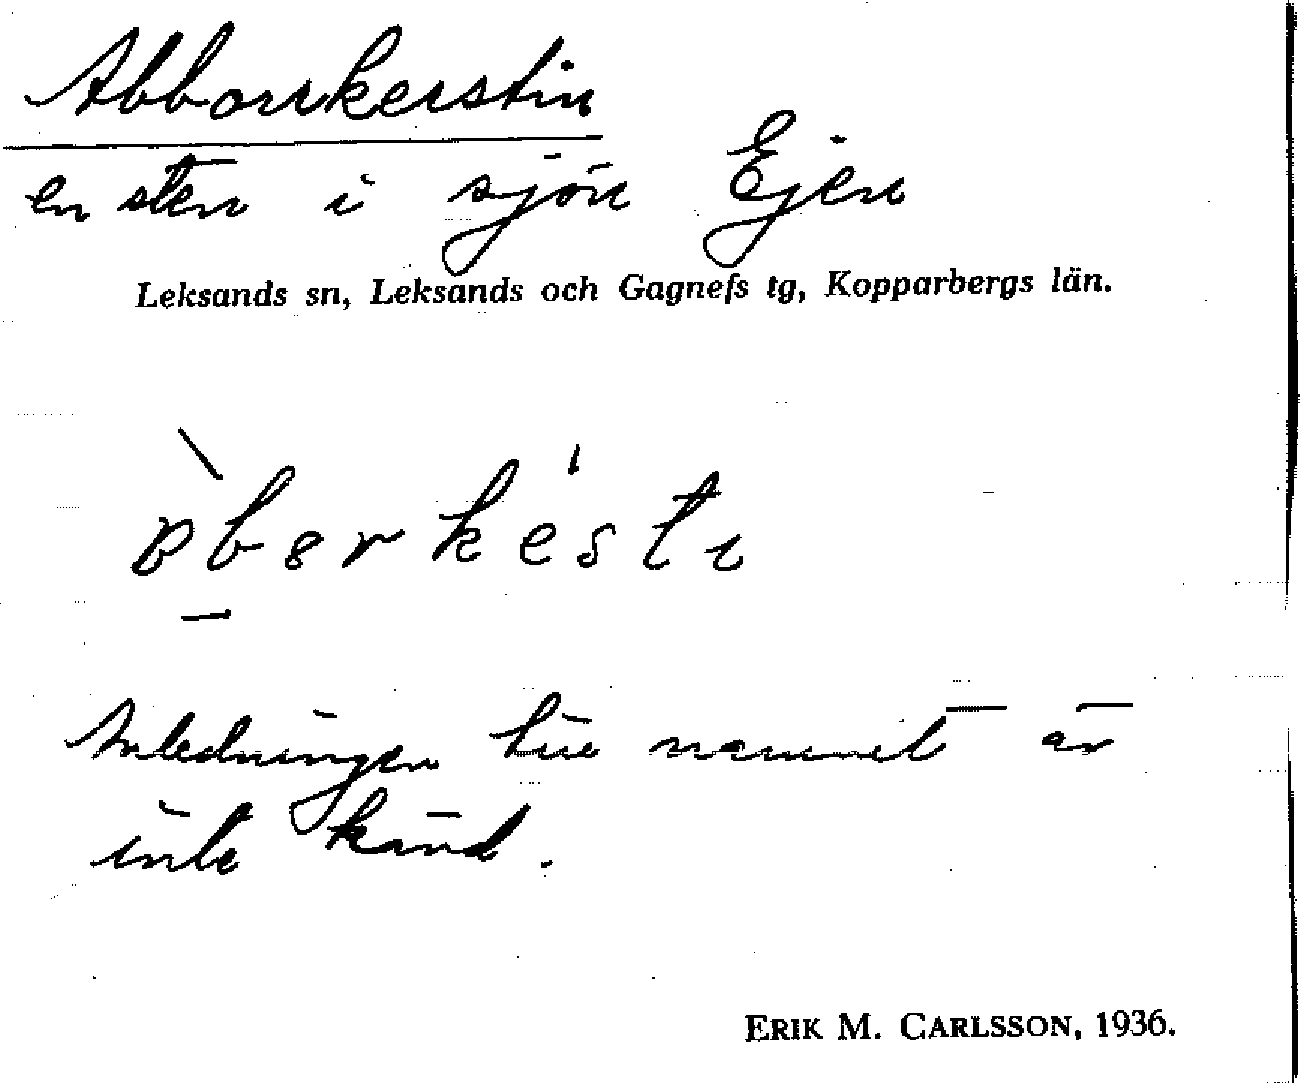 Abborrkerstin
en sten i sjön Ejen
Leksands sn, Leksands och Gagnefs tg, Kopparbergs län.
Anledningen till namnet är
inte känd.
ERIK M. CARLSSON, 1936.